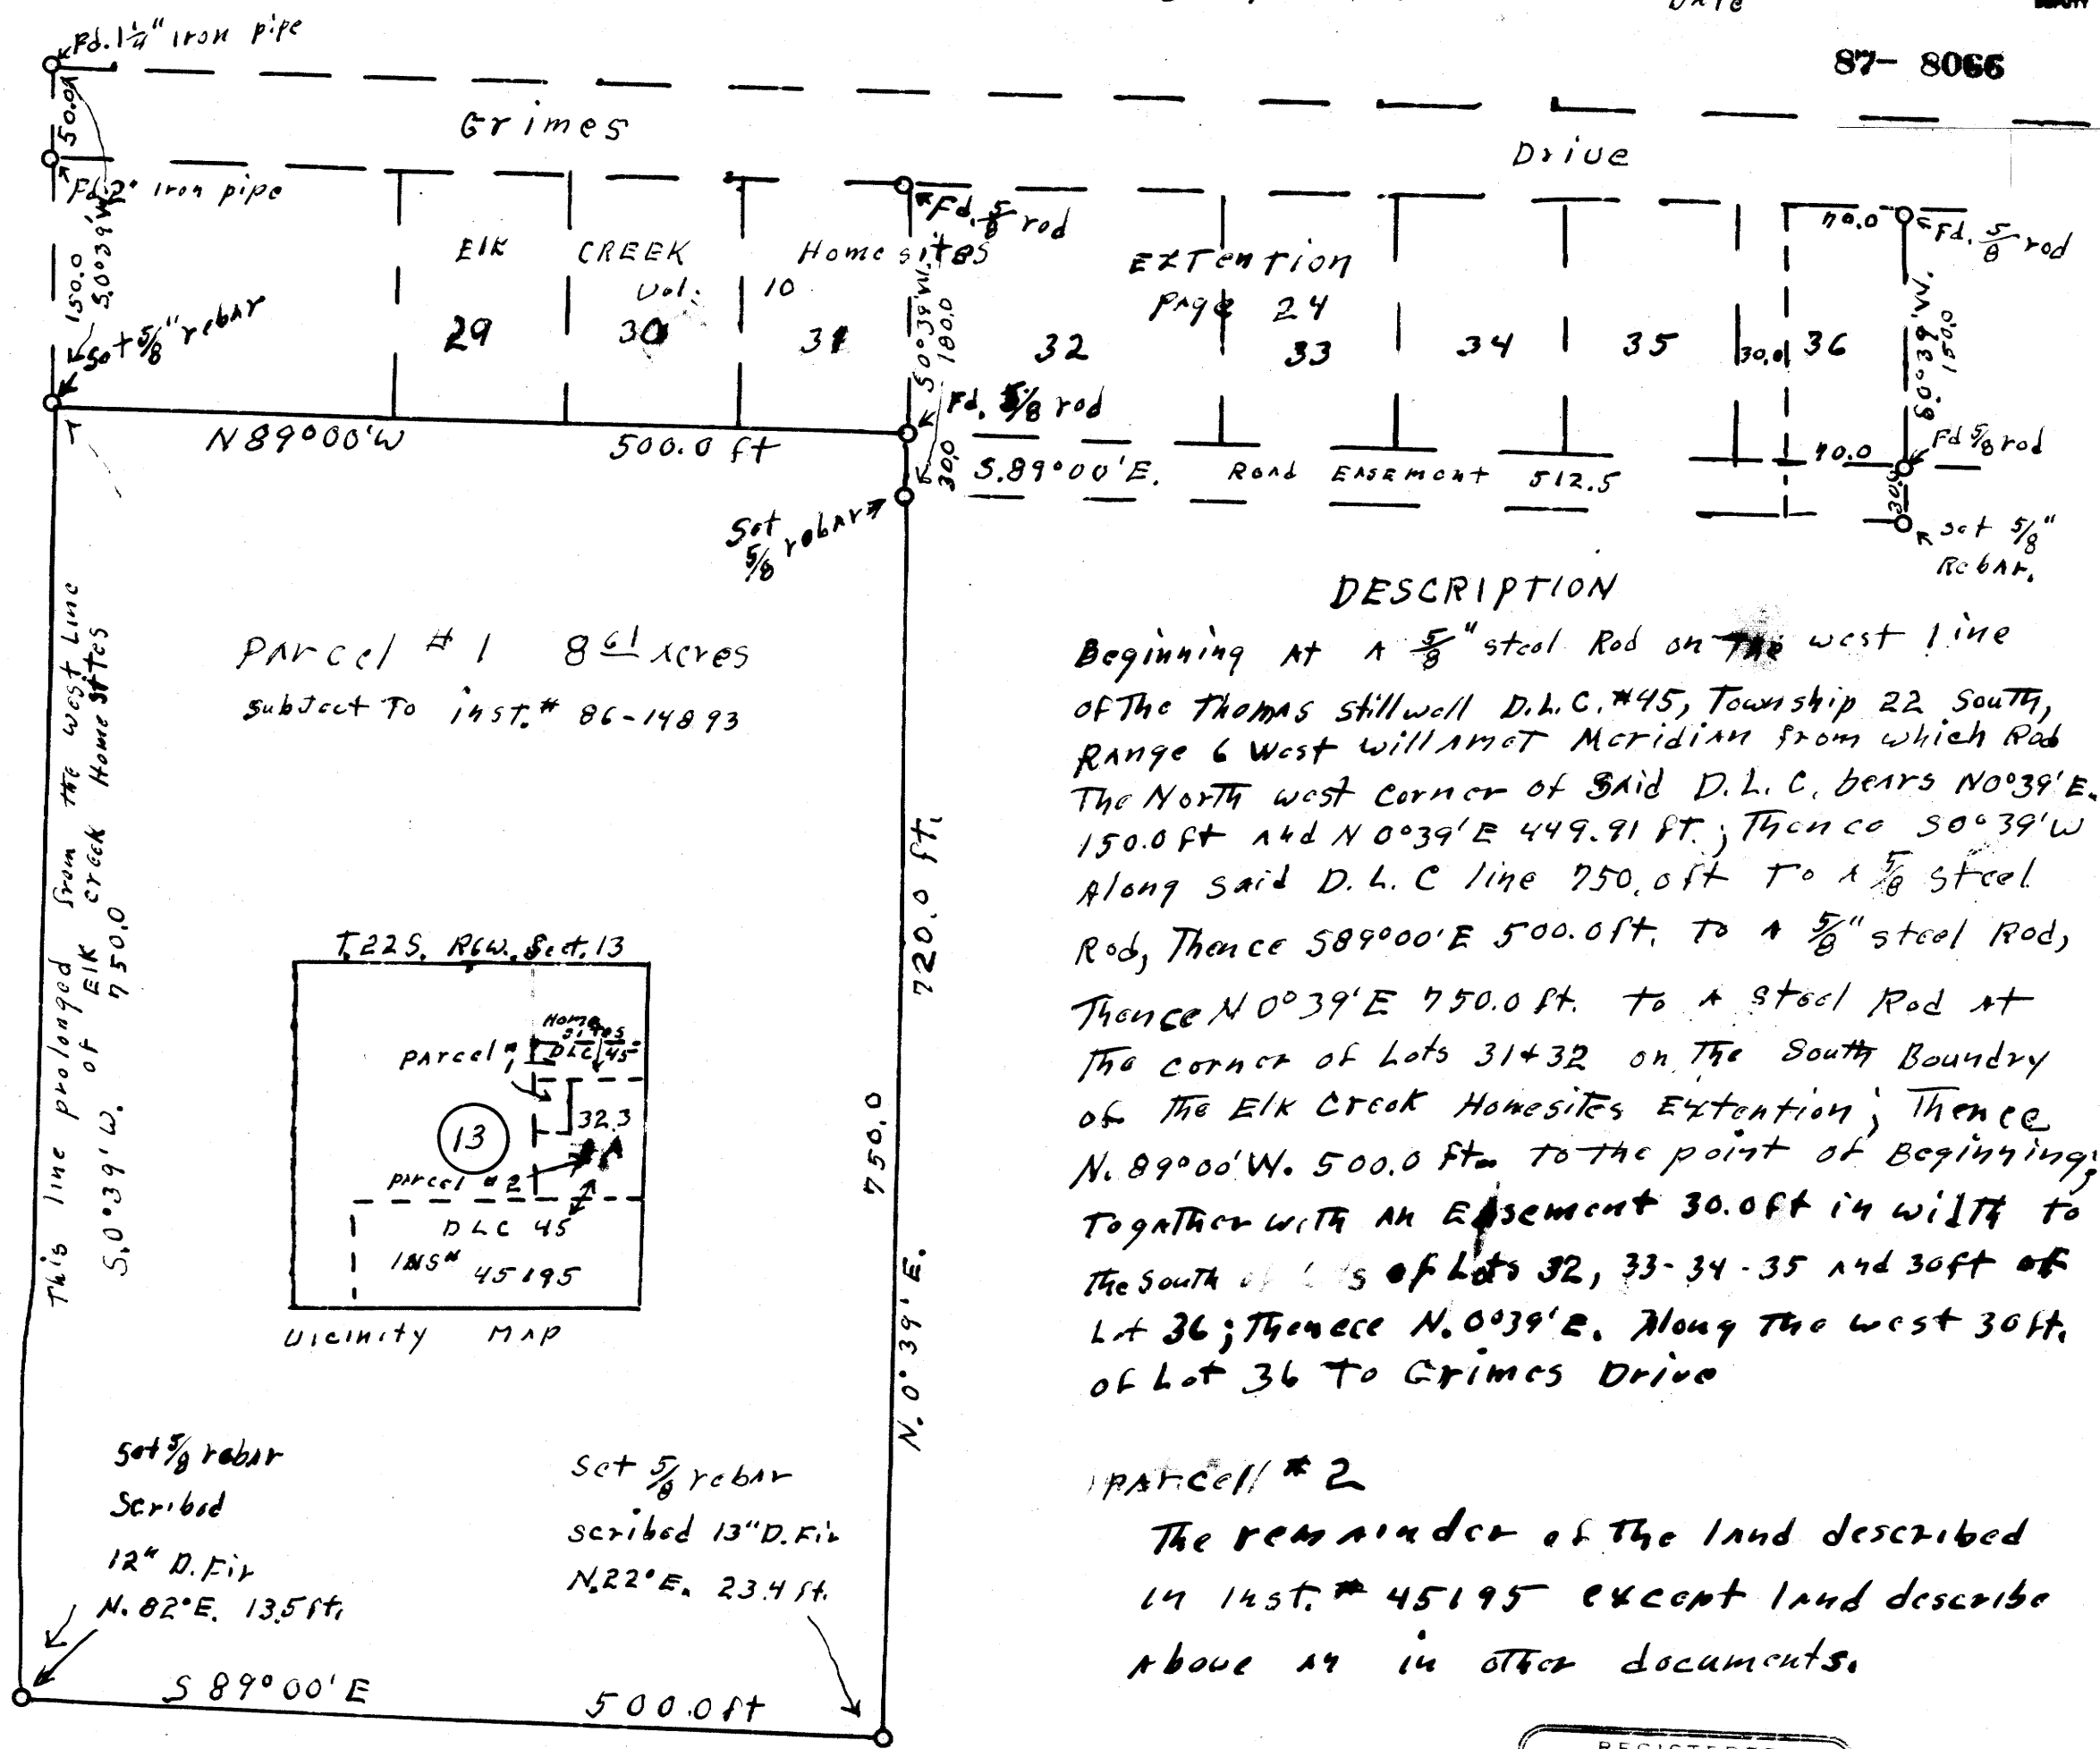 DATE
DEPUTY
87- 8066
Fd. 1¼" iron pipe
50.0
Grimes
Drive
Fd. 2" iron pipe
S.0°39'W
150.0
Set 5/8" rebar
Elk CREEK Homesites EXTention
Vol. 10 Page 24
29 30 31 32 33 34 35 30.0 36
Fd. 5/8 rod
S0°39'W.
180.0
Fd. 5/8 rod
30.0
70.0
Fd. 5/8 rod
S.0°39'W.
150.0
70.0
Fd 5/8 rod
30.0
Set 5/8"
Rebar.
N89°00'W 500.0 ft
S.89°00'E. Road EASEMENT 512.5
Set
5/8 rebar
PArcel #1 8 61 Acres
subJect To inst.# 86-14893
This line prolonged from the west Line
of Elk creek Homesites
S.0°39'W. 750.0
720.0 ft.
750.0
N.0°39'E.
T.22S. R6W. Sect. 13
Home
sites
DLC 45
PArcel #1
32.3
13
A
parcel #2
DLC 45
INS# 45195
Vicinity MAp
Set 5/8 rebar
Scribed
12" D.Fir
N.82°E. 13.5ft.
Set 5/8 rebar
scribed 13" D.Fir
N.22°E. 23.4 ft.
S 89°00'E 500.0ft
DESCRIPTION
Beginning At A 5/8" steel Rod on The west line
of The Thomas Stillwell D.L.C. #45, Township 22 South,
Range 6 West WillAmet Meridian from which Rod
The North west Corner of Said D.L.C. bears N0°39'E.
150.0ft and N 0°39'E 449.91 ft.; Thence S0°39'W
Along said D.L.C line 750.0ft To A 5/8 steel
Rod, Thence S89°00'E 500.0ft. To A 5/8" steel Rod,
Thence N 0°39'E 750.0 ft. to A steel Rod At
The corner of Lots 31+32 on The South Boundry
of the Elk Creek Homesites Extention; Thence
N. 89°00'W. 500.0 ft. To the point of Beginning;
Together with An Easement 30.0ft in width to
the south of Lots 32, 33-34-35 and 30ft of
Lot 36; Thenece N.0°39'E. Along The west 30ft.
of Lot 36 To Grimes Drive
parcell #2
The remainder of The land described
in inst.# 45195 except land describe
Above in other documents.
REGISTERED